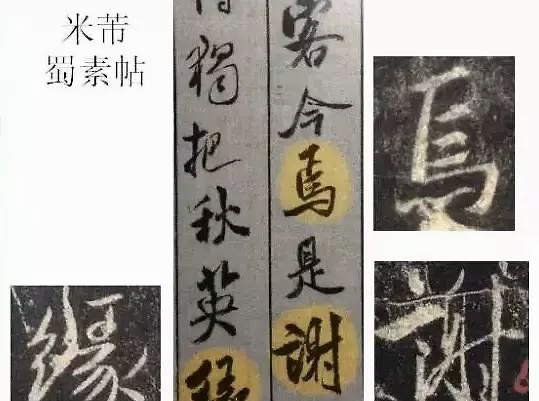 米芾
蜀素帖
客今焉是謝
獨把秋英緣
焉
謝
緣